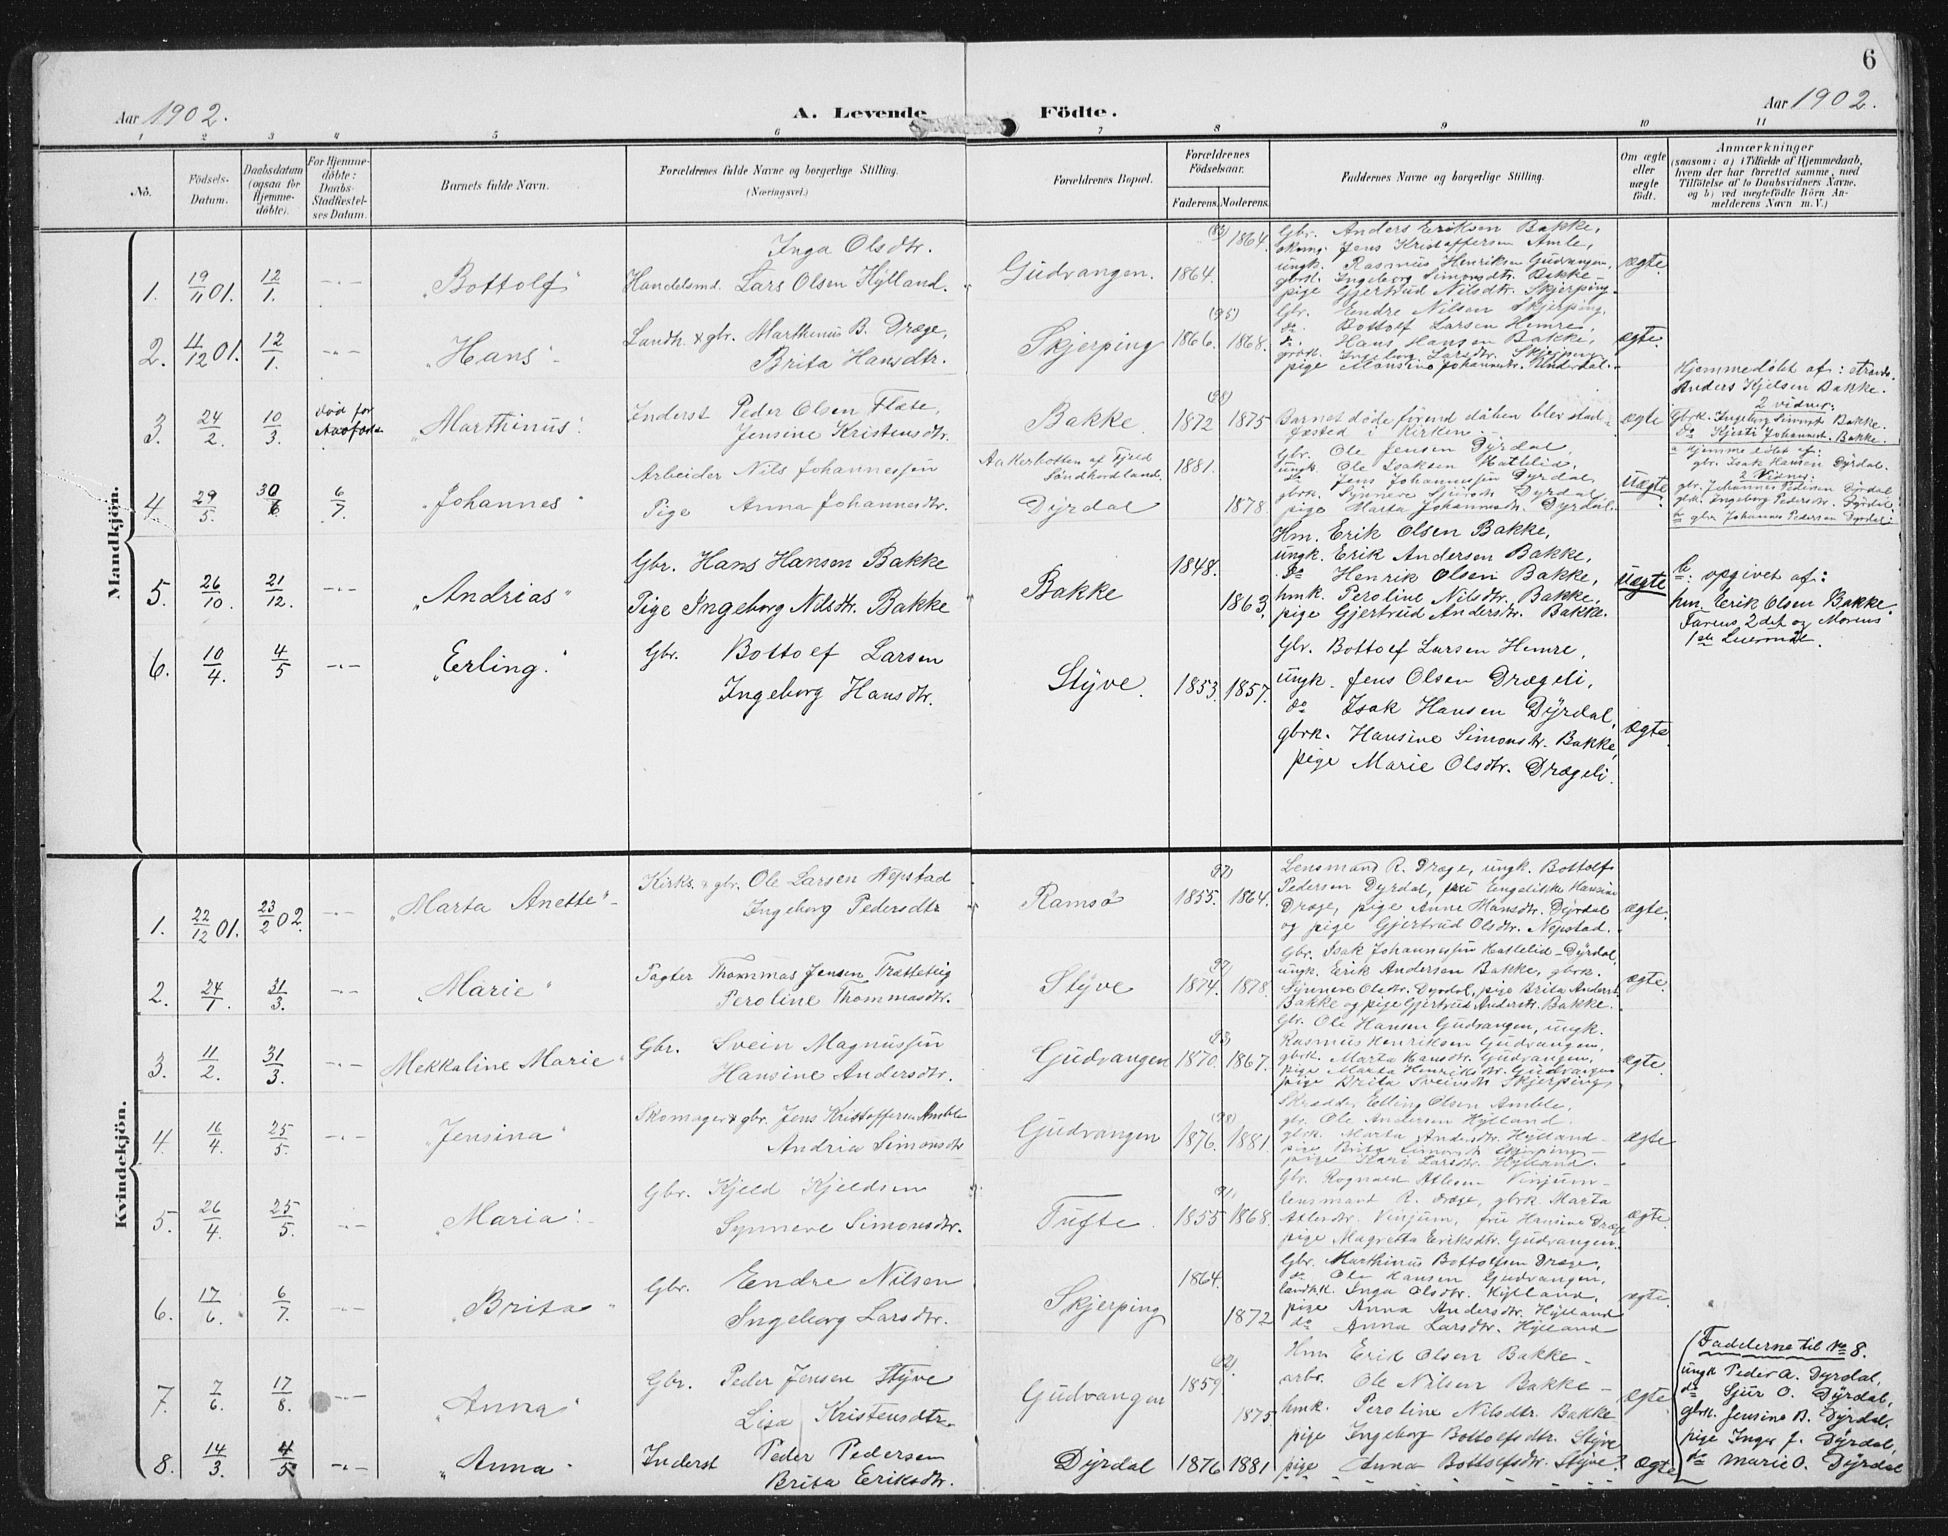 6
Aar 1902.
A. Levende Födte.
Aar 1902.
1 2 3 4 5 6 7 8 9 10 11
No.
Födsels-
Datum.
Daabsdatum
(ogsaa for
Hjemme-
döbte).
For Hjemme-
döbte:
Daabs-
Stadfæstel-
ses Datum.
Barnets fulde Navn.
Forældrenes fulde Navne og borgerlige Stilling.
(Næringsvei.)
Forældrenes Bopæl.
Forældrenes
Födselsaar.
Faderens. Moderens.
Faddernes Navne og borgerlige Stilling.
Om ægte
eller
uægte
født.
Anmærkninger
(saasom: a) i Tilfælde af Hjemmedaab,
hvem der har forrettet samme, med
Tilföielse af to Daabsvidners Navne,
og b) ved uægtefödte Börn An-
melderens Navn m. V.)
Mandkjön.
1. 19/11 01. 12/1. -"- "Bottolf"
Inga Olsdtr.
Handelsmd. Lars Olsen Hylland.
Gudvangen. 1864. 1864.
Gbr. Anders Eriksen Bakke,
Jens Kristoffersen Amle,
ungk. Rasmus Henriksen Gudvangen,
gbrk. Ingeborg Simonsdtr. Bakke-
pige Gjertrud Nilsdtr. Skjerping.
ægte
2. 4/12 01. 12/1. -"- "Hans"
Landh. & gbr. Marthinus B. Dræge,
Brita Hansdtr.
Skjerping 1866. 1868.
Gbr. Endre Nilsen Skjerping,
do. Bottolf Larsen Hemre,
do. Hans Hansen Bakke,
gbrk. Ingeborg Larsdtr. Skjerping
ægte.
3. 24/2. 10/3. død for
"Marthinus"
Inderst Peder Olsen Flate,
Jensine Kristensdtr.
Bakke. 1872 1875
Barnet døde førend dåben blev stad-
fæsted i Kirken.
ægte
Hjemmedøbt af:
Anders Kjelsen Bakke.
2 vidner:
Gbrk. Ingeborg Simonst. Bakke.
do Kjersti Johannest. Bakke.
4. 29/5. 30/6. 6/7. "Johannes"
Arbeider Nils Johannessøn
Pige Anna Johannesdtr.
Aakerbotten af Fjeld
Søndhordland.
Dyrdal 1881. 1878
Gbr. Ole Jensen Dyrdal,
ungk. Ole Isaksen Hattelid,
do Jens Johannessøn Dyrdal,
gbrk. Synneve Sjursdt. Dyrdal,
pige Marta Johannesdtr. Dyrdal.
uægte
a Hjemmedøbt af:
gbr. Isak Hansen Dyrdal.
2 Vidner:
gbr. Johannes Pedersen Dyrdal
gbk. Ingeborg Pedersdtr. Dyrdal.
b gbr Johannes Pedersen Dyrdal.
5. 26/10. 21/12. -"- "Andrias"
Gbr. Hans Hansen Bakke
Pige Ingeborg Nilsdtr. Bakke
Bakke 1848. 1863,
Hm. Erik Olsen Bakke,
ungk. Erik Andersen Bakke,
do Henrik Olsen Bakke,
hmk. Peroline Nilsdtr. Bakke,
pige Gjertrud Andersdtr. Bakke.
uægte
b: opgivet af:
hm. Erik Olsen Bakke.
Farens 2det og Morens
1ste Leiermål.
6. 10/4. 4/5 -"- "Erling"
Gbr. Bottolf Larsen
Ingeborg Hansdtr.
Styve. 1853. 1857.
Gbr. Bottolf Larsen Hemre,
ungk. Jens Olsen Drægeli,
do Isak Hansen Dyrdal,
gbrk. Hansine Simonstr. Bakke,
pige Marie Olsdtr. Drægeli.
ægte.
Kvindekjön.
1. 22/12 01. 23/2 02. -"- "Marta Anette"
Kirks. & gbr. Ole Larsen Nepstad
Ingeborg Pedersdtr
Ramsø 1855. 1864.
Lensmand R. Dræge, ungk. Bottolf
Pedersen Dyrdal, frü Engelikke Hansine
Dræge, pige Anne Hansdtr. Dyrdal
og pige Gjertrud Olsdtr. Nepstad.
ægte.
2. 24/1. 31/3. -"- "Marie"
Pagter Thommas Jensen Trætteteig
Peroline Thommasdtr.
Styve 1874. 1878.
Gbr. Isak Johannessøn Hattelid-Dyrdal,
ungk. Erik Andersen Bakke, gbrk.
Synneve Olsdtr. Dyrdal, pige Brita Anderst.
Bakke og pige Gjertrud Anderst. Bakke.
ægte.
3. 11/2. 31/3. -"- "Mekkaline Marie"
Gbr. Svein Magnussøn
Hansine Andersdtr.
Gudvangen 1870. 1867.
Gbr. Ole Hansen Gudvangen, ungk.
Rasmus Henriksen Gudvangen,
gbrk. Marta Hansdtr. Gudvangen,
pige Marta Henriksdtr. Gudvangen
pige Brita Sveinsdt. Skjerping
ægte.
4. 16/4. 25/5. -"- "Jensina"
Skomager & gbr. Jens Kristoffersen Amble
Andria Simonsdtr
Gudvangen 1876. 1881
Skrædder Elling Olsen Amble,
gbr. Ole Andersen Hylland.
gbrk. Marta Andersdtr. Hylland-
pige Brita Simonst. Skjerping-
pige Kari Larsdtr. Hylland.
ægte
5. 26/4. 25/5. -"- "Maria"
Gbr. Kjeld Kjeldsen
Synneve Simonsdtr.
Tufte. 1855 1868.
Gbr. Rognald Atlesen Vinjum-
lensmand R. Dræge, gbrk Marta
Atlesdtr. Vinjum, frü Hansine Dræge
pige Magretta Eriksdtr. Gudvangen.
ægte.
6. 17/6. 6/7. -"- "Brita"
Gbr. Endre Nilsen
Ingeborg Larsdtr.
Skjerping 1864. 1872
Gbr. Marthinus Bottolfsen Dræge,
do Ole Hansen Gudvangen,
landhk. Inga Olsdtr. Hylland,
pige Anna Andersdtr. Hylland
do Anna Larsdtr. Hylland
ægte.
7. 7/6. 17/8. -"- "Anna"
Gbr. Peder Jensen Styve
Lisa Kristensdtr.
Gudvangen 1859. 1875
Hm Erik Olsen Bakke-
arbr. Ole Nilsen Bakke-
hmk. Peroline Nilsdtr. Bakke
pige Ingeborg Bottolfsdtr. Styve
pige Anna Bottolfsdtr. Styve.
ægte
8. 14/3. 4/5 -"- "Anna"
Inderst Peder Pedersen
Brita Eriksdtr.
Dyrdal 1876 1881
ægte
Fadderne til No 8.
ungk Peder A. Dyrdal,
do Sjur O. Dyrdal,
gbrk. Jensine B. Dyrdal,
pige Inger J. Dyrdal,
do Marie O. Dyrdal